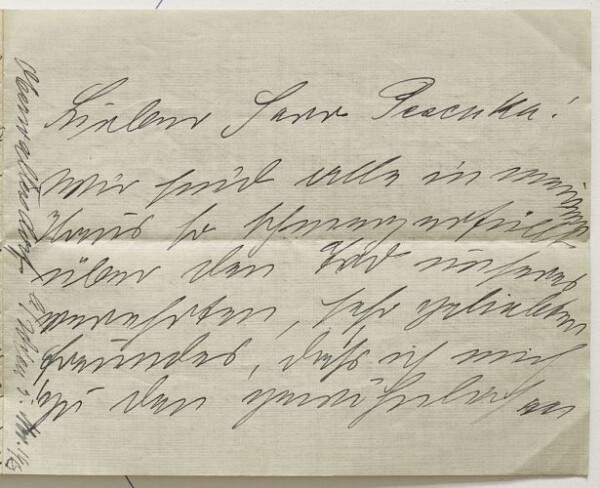 Lieber Herr Peschka!
Wir sind alle in meinem
Haus so schmerzerfüllt
über den Tod unseres
verehrten, sehr geliebten
Freundes, daß ich mich
zu den gewöhnlichen